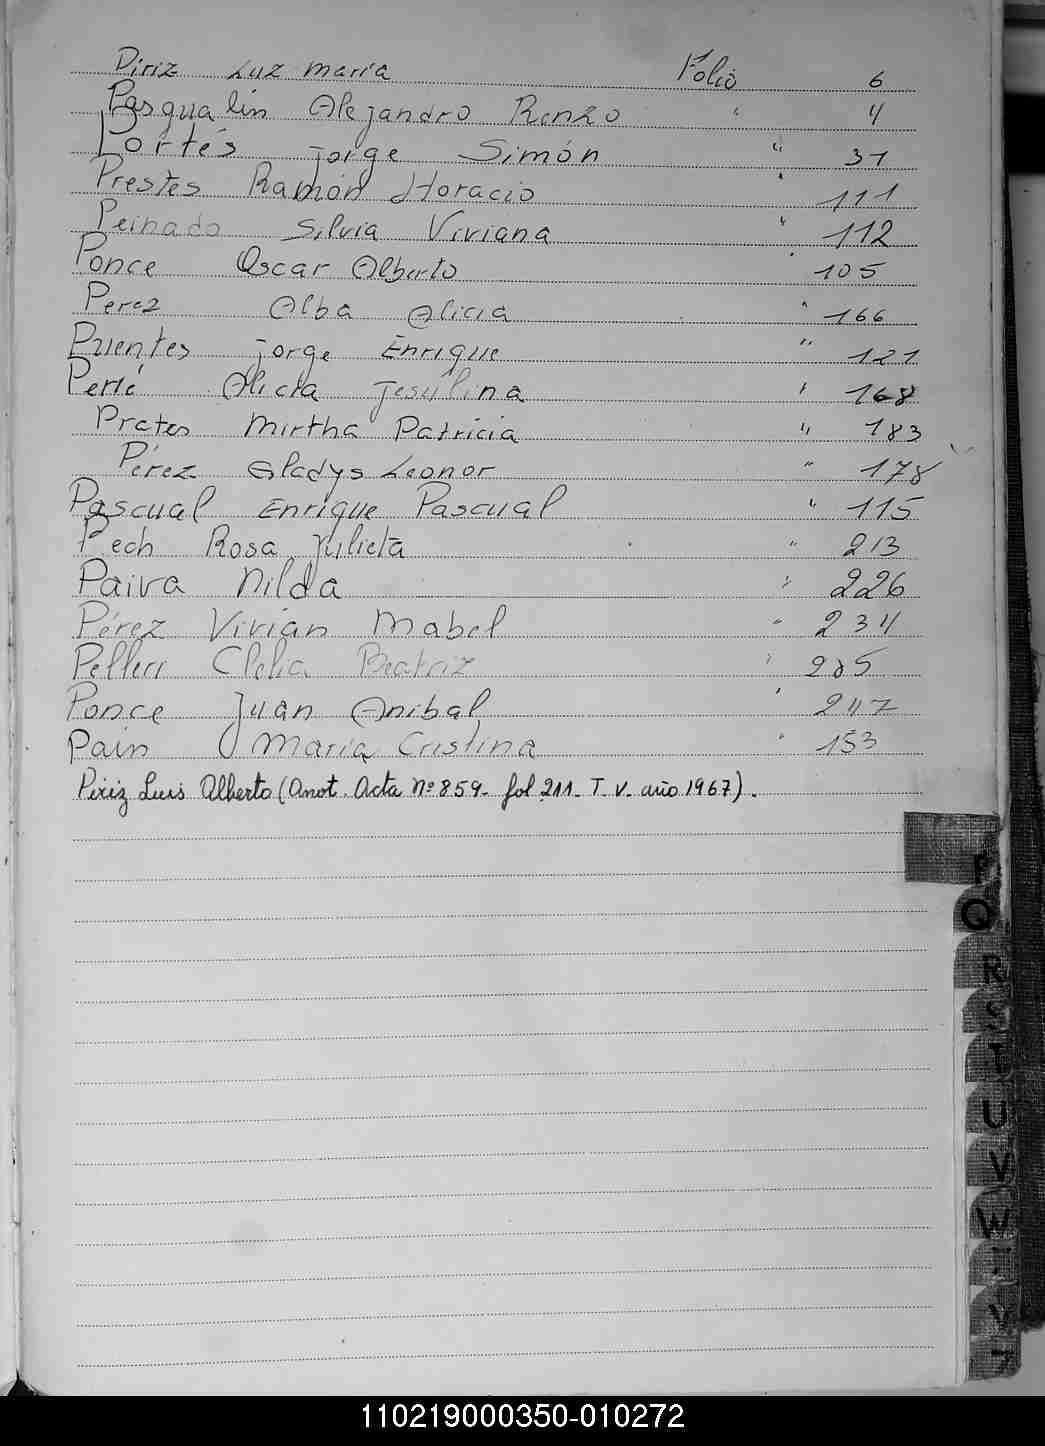 Piriz Luz maria Folio 6
Pasqualin Alejandro Renzo " 4
Portés jorge Simón " 31
Prestes Ramón Horacio " 111
Peinado Silvia Viviana " 112
Ponce Oscar Alberto " 105
Perez Alba Alicia " 166
Puentes jorge Enrique " 121
Perlé Alicia jesulina " 168
Prates Mirtha Patricia " 183
Pérez Gladys Leonor " 178
Pascual Enrique Pascual " 115
Pech Rosa Julieta " 213
Paiva Nilda " 226
Pérez Vivián Mabel " 234
Pelleri Clelia Beatriz "
Ponce Juan Anibal " 247
Pain María Cristina " 153
Piriz Luis Alberto (Anot. Acta nº 859. fol 211. T. V. año 1967).
P
Q
R
S
T
U
V
W
Y
Z
110219000350-010272